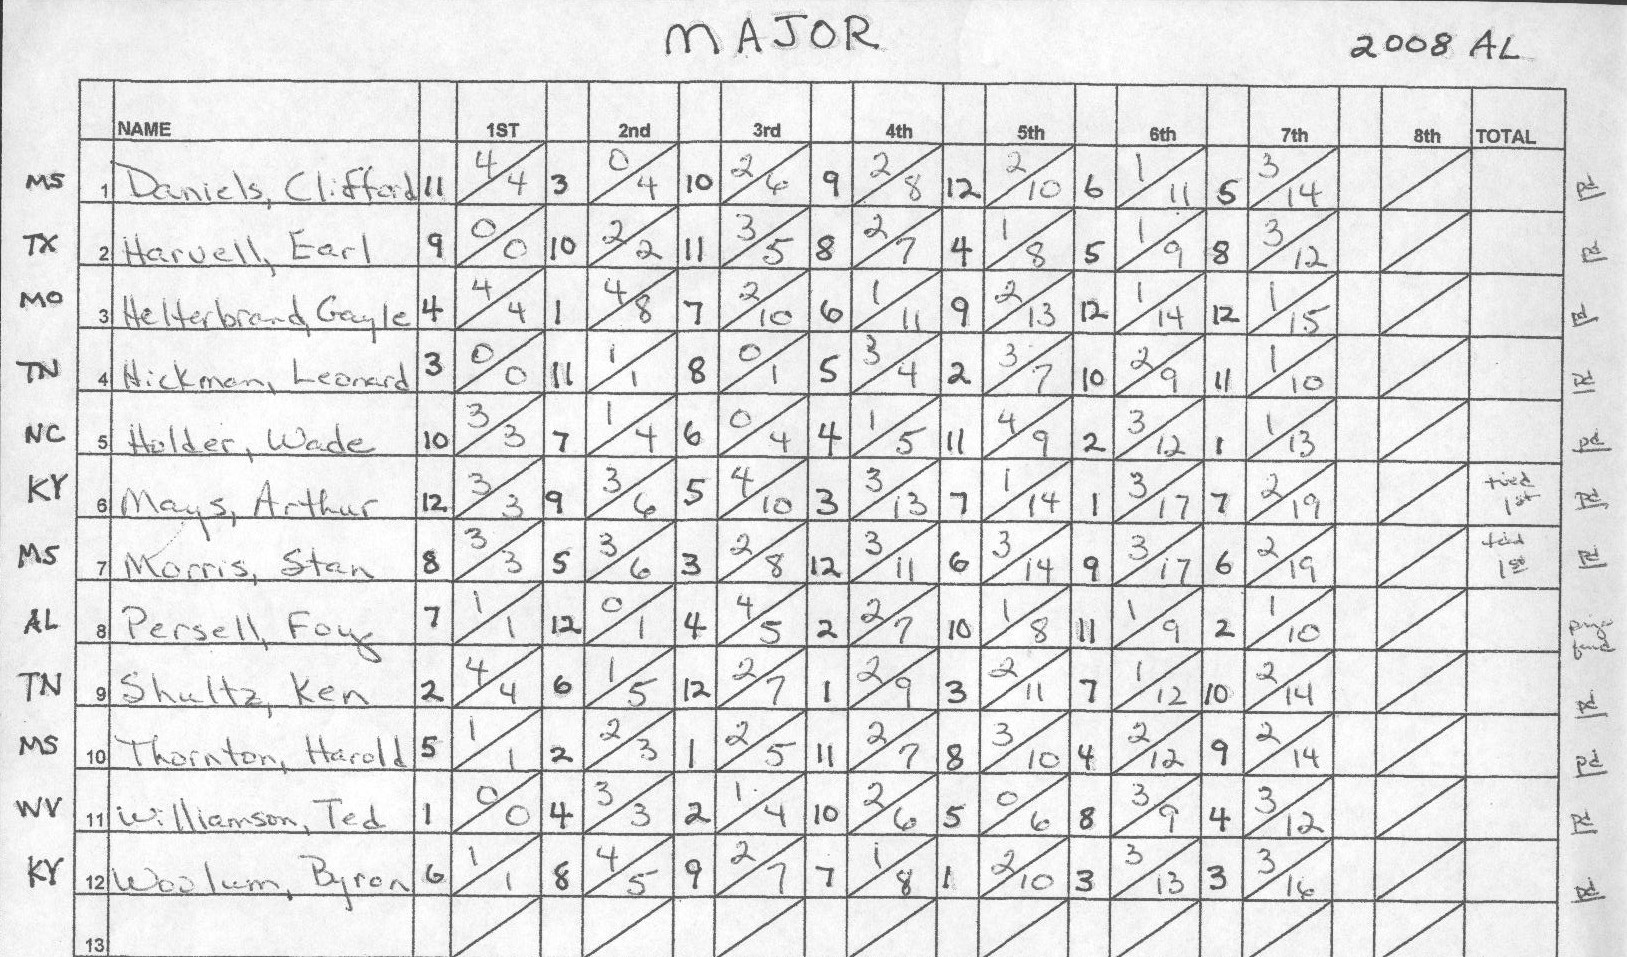 MAJOR
2008 AL
NAME 1ST 2nd 3rd 4th 5th 6th 7th 8th TOTAL
MS 1 Daniels, Clifford 11 4/4 3 0/4 10 2/6 9 2/8 12 2/10 6 1/11 5 3/14 pd
TX 2 Harvell, Earl 9 0/0 10 2/2 11 3/5 8 2/7 4 1/8 5 1/9 8 3/12 pd
MO 3 Helterbrand, Gayle 4 4/4 1 4/8 7 2/10 6 1/11 9 2/13 12 1/14 12 1/15 pd
TN 4 Hickman, Leonard 3 0/0 11 1/1 8 0/1 5 3/4 2 3/7 10 2/9 11 1/10 pd
NC 5 Holder, Wade 10 3/3 7 1/4 6 0/4 4 1/5 11 4/9 2 3/12 1 1/13 pd
KY 6 Mays, Arthur 12 3/3 9 3/6 5 4/10 3 3/13 7 1/14 1 3/17 7 2/19 tied 1st pd
MS 7 Morris, Stan 8 3/3 5 3/6 3 2/8 12 3/11 6 3/14 9 3/17 6 2/19 tied 1st pd
AL 8 Persell, Foy 7 1/1 12 0/1 4 4/5 2 2/7 10 1/8 11 1/9 2 1/10
TN 9 Shultz, Ken 2 4/4 6 1/5 12 2/7 1 2/9 3 2/11 7 1/12 10 2/14 pd
MS 10 Thornton, Harold 5 1/1 2 2/3 1 2/5 11 2/7 8 3/10 4 2/12 9 2/14 pd
WV 11 Williamson, Ted 1 0/0 4 3/3 2 1/4 10 2/6 5 0/6 8 3/9 4 3/12 pd
KY 12 Woolum, Byron 6 1/1 8 4/5 9 2/7 7 1/8 1 2/10 3 3/13 3 3/16 pd
13